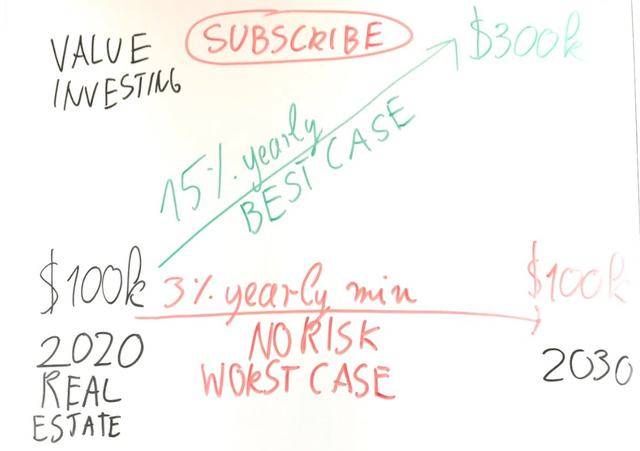 VALUE
INVESTING
SUBSCRIBE
$300k
15% yearly
BEST CASE
$100k
3% yearly min
$100k
2020
NO RISK
2030
REAL
WORST CASE
ESTATE